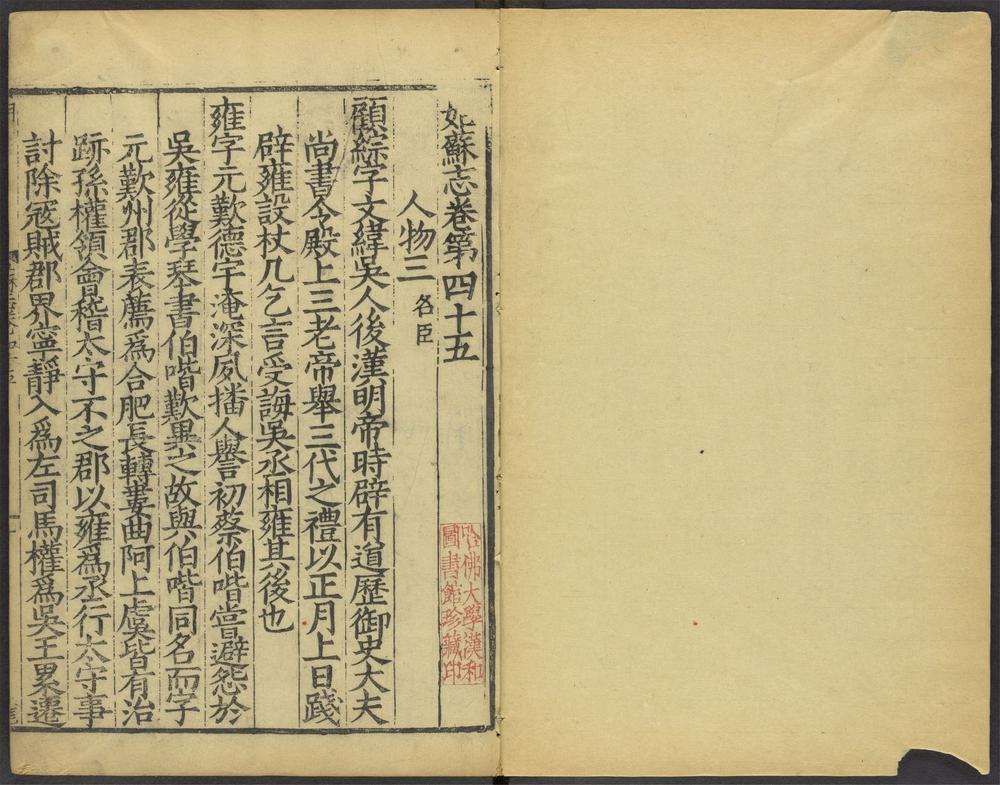 姑蘇志卷第四十五
人物三 名臣
顧綜字文緯吳人後漢明帝時辟有道歷御史大夫
尚書令殿上三老帝舉三代之禮以正月上日踐
辟雍設杖几乞言受誨吳丞相雍其後也
雍字元歎德宇淹深夙播人譽初蔡伯喈嘗避怨於
吳雍從學琴書伯喈歎異之故與伯喈同名而字
元歎州郡表薦爲合肥長轉婁曲阿上虞皆有治
跡孫權領會稽太守不之郡以雍爲丞行太守事
討除寇賊郡界寧靜入爲左司馬權爲吳王累遷
哈佛大學漢和
圖書館珍藏印